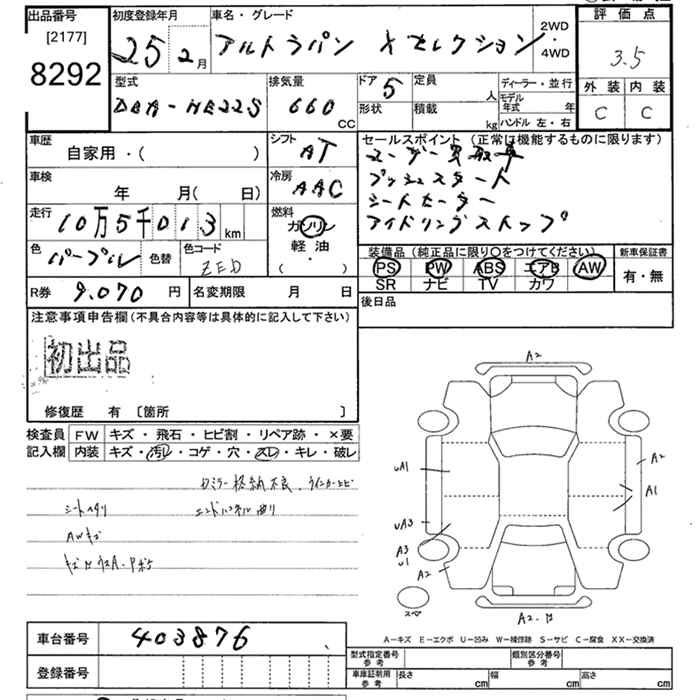 出品番号
[2177]
8292
初度登録年月
25 2月
車名・グレード
アルトラパン Xセレクション
2WD
・
4WD
評価点
3.5
外装 内装
C C
型式
DBA-HE22S
排気量
660 CC
ドア 5
形状
定員 人
積載 kg
ディーラー・並行
モデル年式 年
ハンドル 左・右
車歴
自家用・( )
シフト
AT
セールスポイント (正常に機能するものに限ります)
プッシュスタート
シートヒーター
アイドリングストップ
車検
年 月( 日)
冷房
AAC
走行
10万5千013km
燃料
ガソリン
軽油
・
( )
色
パープル 色替
色コード
ZED
装備品 (純正品に限り〇をつけてください)
PS PW ABS エアB AW
SR ナビ TV カワ
新車保証書
有・無
R券 9.070 円
名変期限 月 日
後日品
注意事項申告欄(不具合内容等は具体的に記入して下さい)
初出品
修復歴 有 〔箇所 〕
検査員
記入欄
FW キズ・飛石・ヒビ割・リペア跡・×要
内装 キズ・汚レ・コゲ・穴・スレ・キレ・破レ
ロミラー格納不良、ウインカーヒビ
シートヘタリ エンドパネル曲リ
AWキズ
A2
uA1
A2
A1
uA3
A3
u1
A2
スペ
A2-B
A−キズ E−エクボ U−凹み W−補修跡 S−サビ C−腐食 XX−交換済
車台番号 403876
登録番号
型式指定番号
参考
類別区分番号
参考
車庫証明用
参考
長さ cm
幅 cm
高さ cm